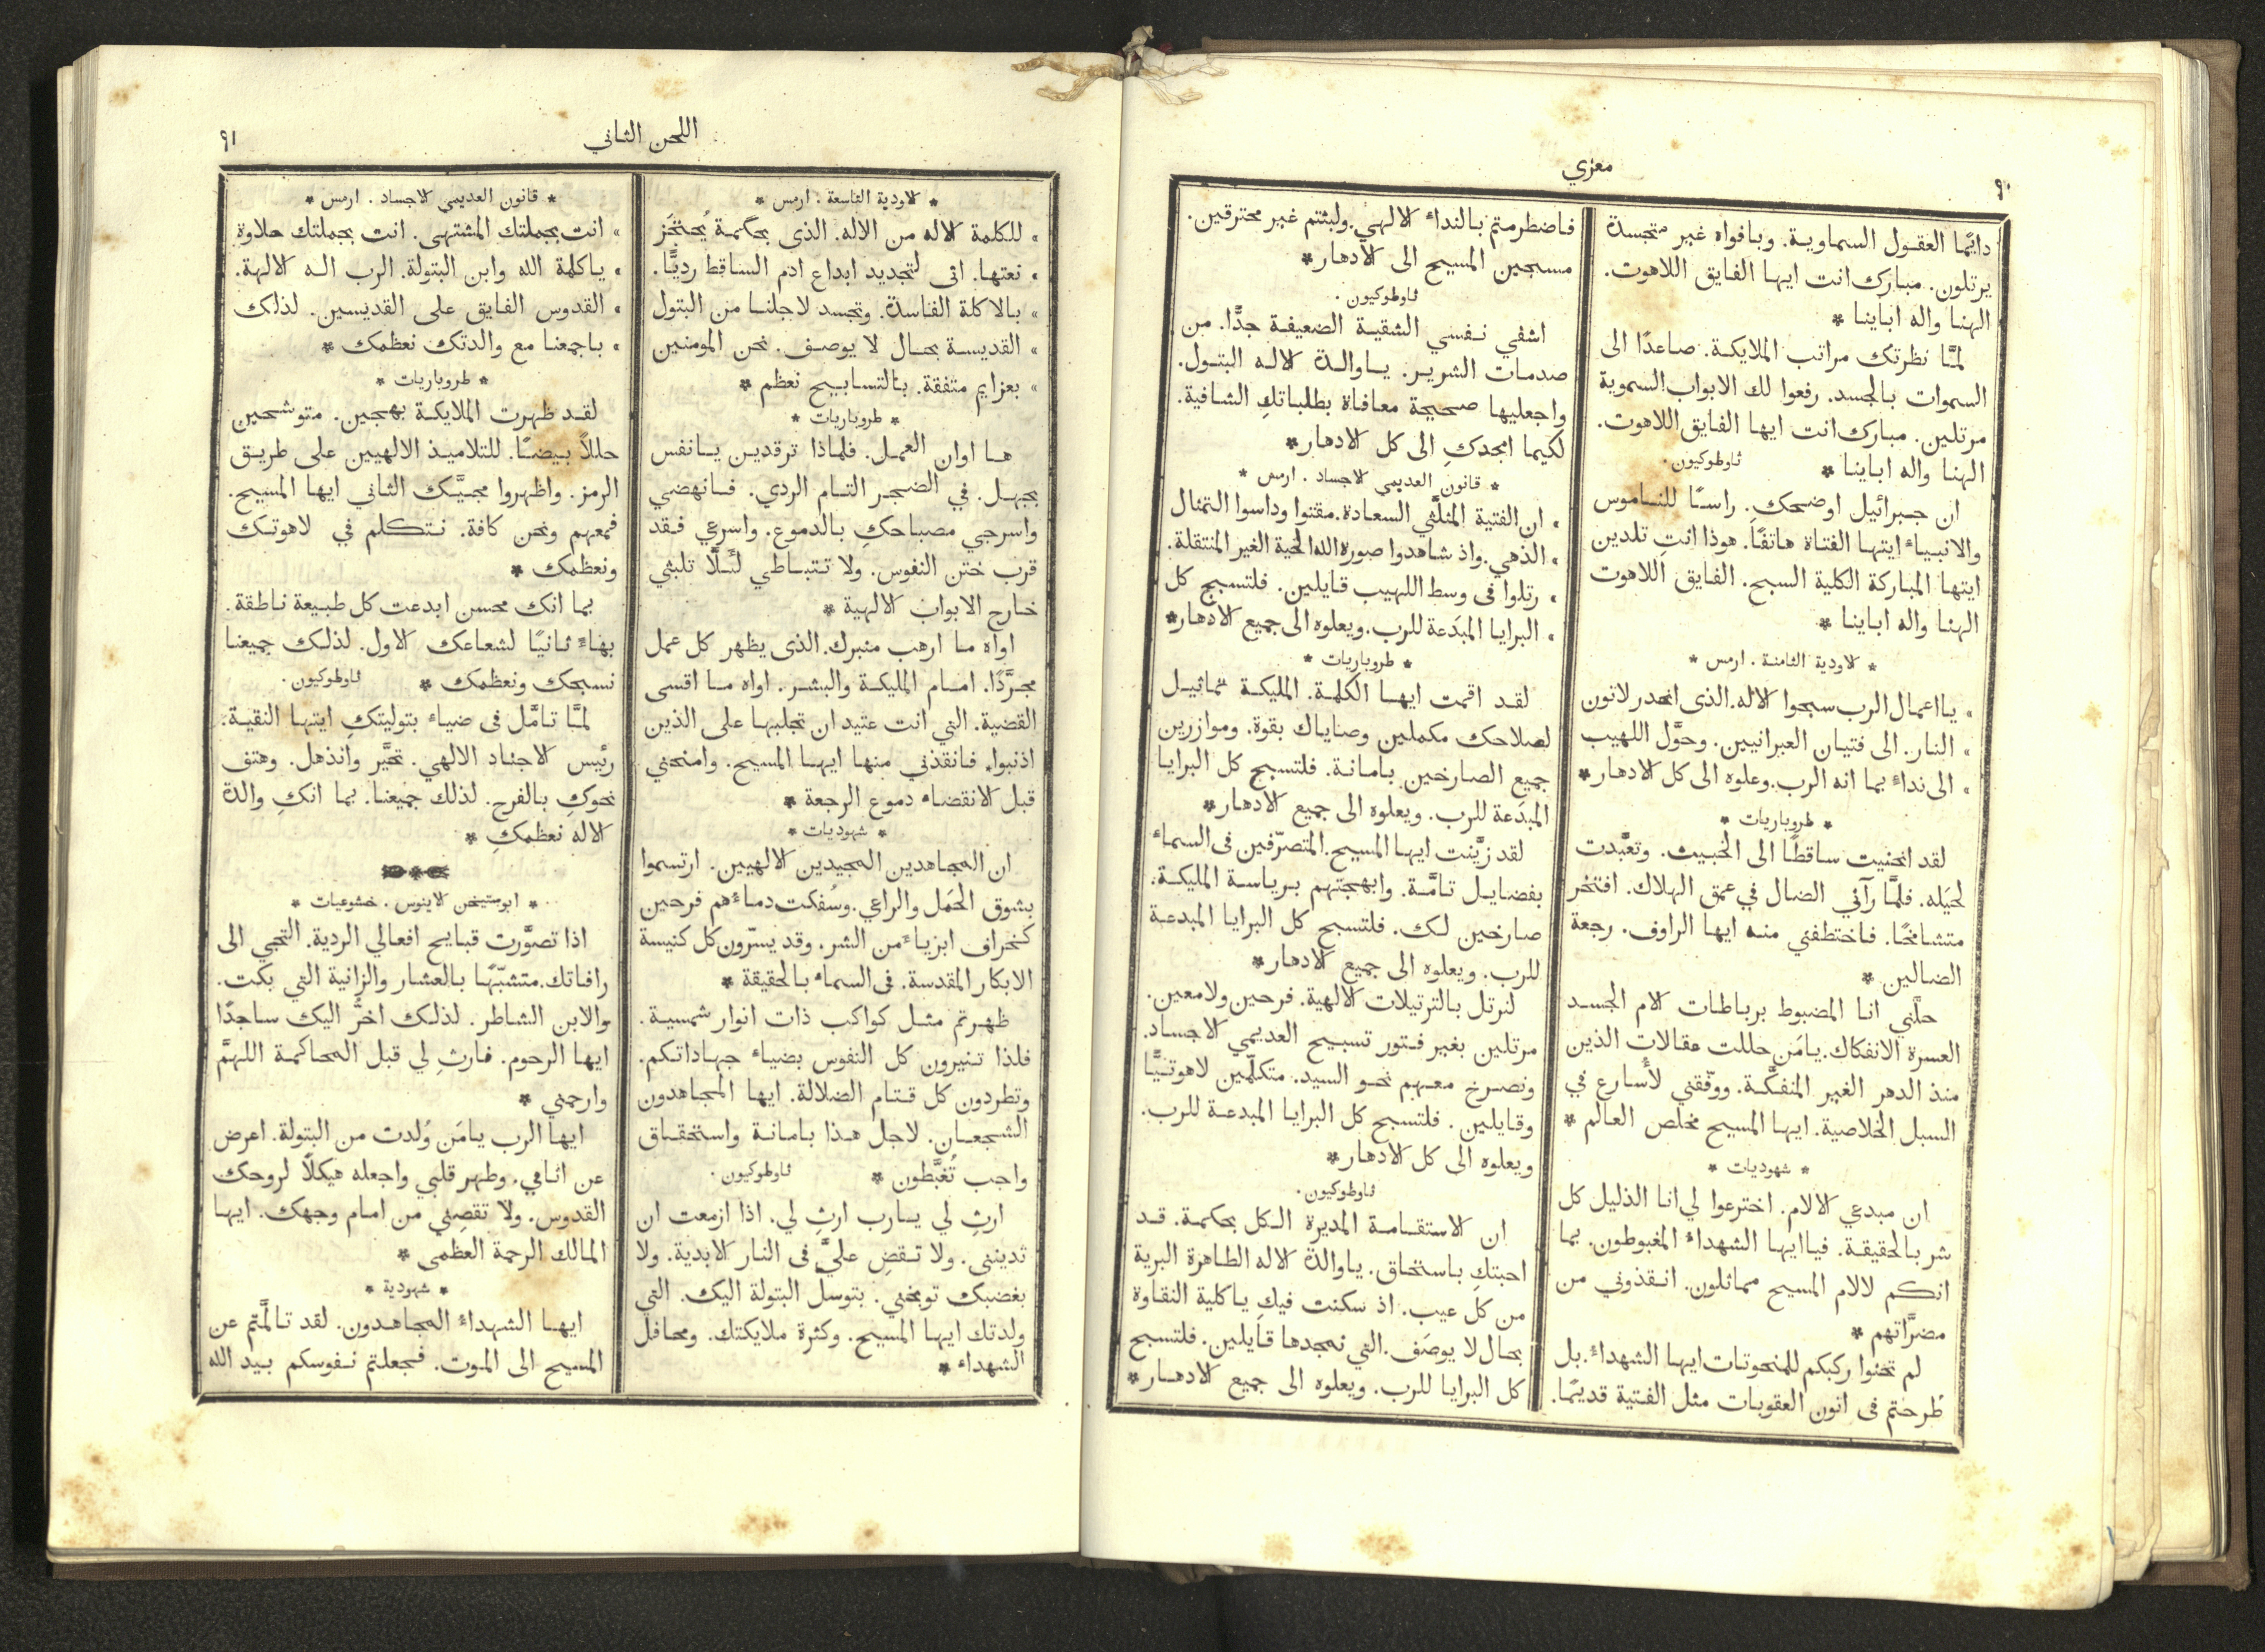 ٩٠
معزي
دايمًا العقول السماوية. وبافواه غير متجسدة
يرتلون. مبارك انت ايها الفايق اللاهوت.
الهنا واله ابآينا *
لمَّا نظرتك مراتب الملايكة. صاعدًا الى
السموات بالجسد. رفعوا لك الابواب السموية
مرتلين. مبارك انت ايها الفايق اللاهوت.
الهنا واله اباينا * ثاوطوكيون.
ان جبرائيل اوضحكِ. راسًا للناموس
والانبياء ايتها الفتاة هاتفًا. هوذا انتِ تلدين
ايتها المباركة الكلية السبح. الفايق اللاهوت
الهنا واله اباينا *
* الاودية الثامنة. ارمس *
» يا اعمال الرب سبحوا الاله. الذى انحدر لاتون
» النار. الى فتيان العبرانيين. وحوَّل اللهيب
» الى نداءٍ بما انه الرب. وعلوه الى كل الادهار *
* طروباريات *
لقد انحنيت ساقطًا الى الخبيث. وتعبَّدت
لحيَله. فلمَّا رآني الضال في عمق الهلاك. افتخر
متشامخًا. فاختطفني منه ايها الراوف. رجعة
الضالين *
حلَّني انا المضبوط برباطات الام الجسد
العسرة الانفكاك. يامَن حللت عقالات الذين
منذ الدهر الغير المنفكَّة. ووفّقني لأسارع في
السبل الخلاصية. ايها المسيح مخلص العالم *
* شهوديات *
ان مبدعي الالام. اخترعوا لي انا الذليل كل
شر بالحقيقة. فيا ايها الشهداء المغبوطون. بما
انكم لالام المسيح مماثلون. انقذوني من
مضرَّاتهم *
لم تحنوا ركبكم للمنحوتات ايها الشهداء. بل
طُرحتم فى اتون العقوبات مثل الفتية قديمًا.
فاضطرمتم بالنداء الالهي. ولبثتم غير محترقين.
مسبحين المسيح الى الادهار *
ثاوطوكيون.
اشفي نفسي الشقية الضعيفة جدًّا. من
صدمات الشرير. ياوالدة الاله البتول.
واجعليها صحيحة معافاة بطلباتكِ الشافية.
لكيما امجدكِ الى كل الادهار *
* قانون العديمي الاجساد. ارمس *
» ان الفتية المثلَّثي السعادة. مقتوا وداسوا التمثال
» الذهي. واذ شاهدوا صورة الله الحية الغير المنتقلة.
» رتلوا فى وسط اللهيب قايلين. فلتسبح كل
» البرايا المبدَعة للرب. ويعلوه الى جميع الادهار *
* طروباريات *
لقد اقمت ايها الكلمة. المليكة تماثيل
لصلاحك مكملين وصاياك بقوة. وموازرين
جميع الصارخين بامانة. فلتسبح كل البرايا
المبدَعة للرب. ويعلوه الى جميع الادهار *
لقد زيَّنت ايها المسيح. المتصرّفين فى السماء
بفضايل تامَّة. وابهجتهم برياسة المليكة.
صارخين لك. فلتسبح كل البرايا المبدعة
للرب. ويعلوه الى جميع الادهار *
لنرتل بالترتيلات الالهية. فرحين ولامعين.
مرتلين بغير فتور تسبيح العديمي الاجساد.
ونصرخ معهم نحو السيد. متكلّمين لاهوتيًّا
وقايلين. فلتسبح كل البرايا المبدعة للرب.
ويعلوه الى كل الادهار *
ثاوطوكيون.
ان الاستقامة المديرة الكل بحكمة. قد
احبتكِ باستحقاق. ياوالدة الاله الطاهرة البرية
من كل عيب. اذ سكنت فيكِ ياكلية النقاوة
بحال لا يوصَف. التي نمجدها قايلين. فلتسبح
كل البرايا للرب. ويعلوه الى جميع الادهار *
اللحن الثاني
٩١
* الاودية التاسعة. ارمس *
» للكلمة الاله من الاله. الذى بحكمة يُحتجَز
» نعتها. اتى لتجديد ابداع ادم الساقط رديًّا.
» بالاكلة الفاسدة. وتجسد لاجلنا من البتول
» القديسة بحال لا يوصف. نحن المومنين
» بعزايم متفقة. بالتسابيح نعظم *
* طروباريات *
ها اوان العمل. فلماذا ترقدين يانفس
بجهل. في الضجر التام الردي. فانهضي
واسرجي مصباحكِ بالدموع. واسرعي فقد
قرب ختن النفوس. ولا تتباطي لئلَّا تلبثي
خارج الابواب الالهية *
اواه ما ارهب منبرك. الذى يظهر كل عمل
مجرَّدًا. امام المليكة والبشر. اواه ما اقسى
القضية. التي انت عتيد ان تجلبها على الذين
اذنبوا. فانقذني منها ايها المسيح. وامنحني
قبل الانقضاء دموع الرجعة *
* شهوديات *
ان المجاهدين المجيدين الالهيين. ارتسموا
بشوق الحمَل والراعي. وسُفكت دماءهم فرحين
كخراف ابرياء من الشر. وقد يسرّون كل كنيسة
الابكار المقدسة. فى السماء بالحقيقة *
ظهرتم مثل كواكب ذات انوار شمسية.
فلذا تنيرون كل النفوس بضياء جهاداتكم.
وتطردون كل قتام الضلالة. ايها المجاهدون
الشجعان. لاجل هذا بامانة واستحقاق
واجب تُغبَّطون * ثاوطوكيون.
ارثِ لي يارب ارثِ لي. اذا ازمعت ان
تدينني. ولا تقضِ عليَّ فى النار الابدية. ولا
بغضبك توبخني. بتوسل البتولة اليك. التي
ولدتك ايها المسيح. وكثرة ملايكتك. ومحافل
الشهداء *
* قانون العديمي الاجساد. ارمس *
» انت بجملتك المشتهى. انت بجملتك حلاوة
» ياكلمة الله وابن البتولة. الرب اله الالهة.
» القدوس الفايق على القديسين. لذلك
» باجمعنا مع والدتك نعظمك *
* طروباريات *
لقد ظهرت الملايكة بهجين. متوشحين
حللاً بيضًا. للتلاميذ الالهيين على طريق
الرمز. واظهروا مجيَّك الثاني ايها المسيح.
فمعهم ونحن كافة. نتكلم في لاهوتك
ونعظمك *
بما انك محسن ابدعت كل طبيعة ناطقة.
بهاءً ثانيًا لشعاعك الاول. لذلك جميعنا
نسبحك ونعظمك * ثاوطوكيون.
لمَّا تامَّل فى ضياء بتوليتكِ ايتها النقية.
رئيس الاجناد الالهي. تحيَّر وانذهل. وهتف
نحوكِ بالفرح. لذلك جميعنا. بما انكِ والدة
الاله نعظمكِ *
* ابوستيخن لاينوس. خشوعيات *
اذا تصوَّرت قبايح افعالي الردية. التجي الى
رافاتك. متشبّهًا بالعشار والزانية التي بكت.
والابن الشاطر. لذلك اخرُّ اليك ساجدًا
ايها الرحوم. فارثِ لي قبل المحاكمة اللهمَّ
وارحمني *
ايها الرب يامَن وُلدت من البتولة. اعرض
عن اثامي. وطهر قلبي واجعله هيكلًا لروحك
القدوس. ولا تقصِني من امام وجهك. ايها
المالك الرحمة العظمى *
* شهودية *
ايها الشهداء المجاهدون. لقد تالَّمتم عن
المسيح الى الموت. فجعلتم نفوسكم بيد الله